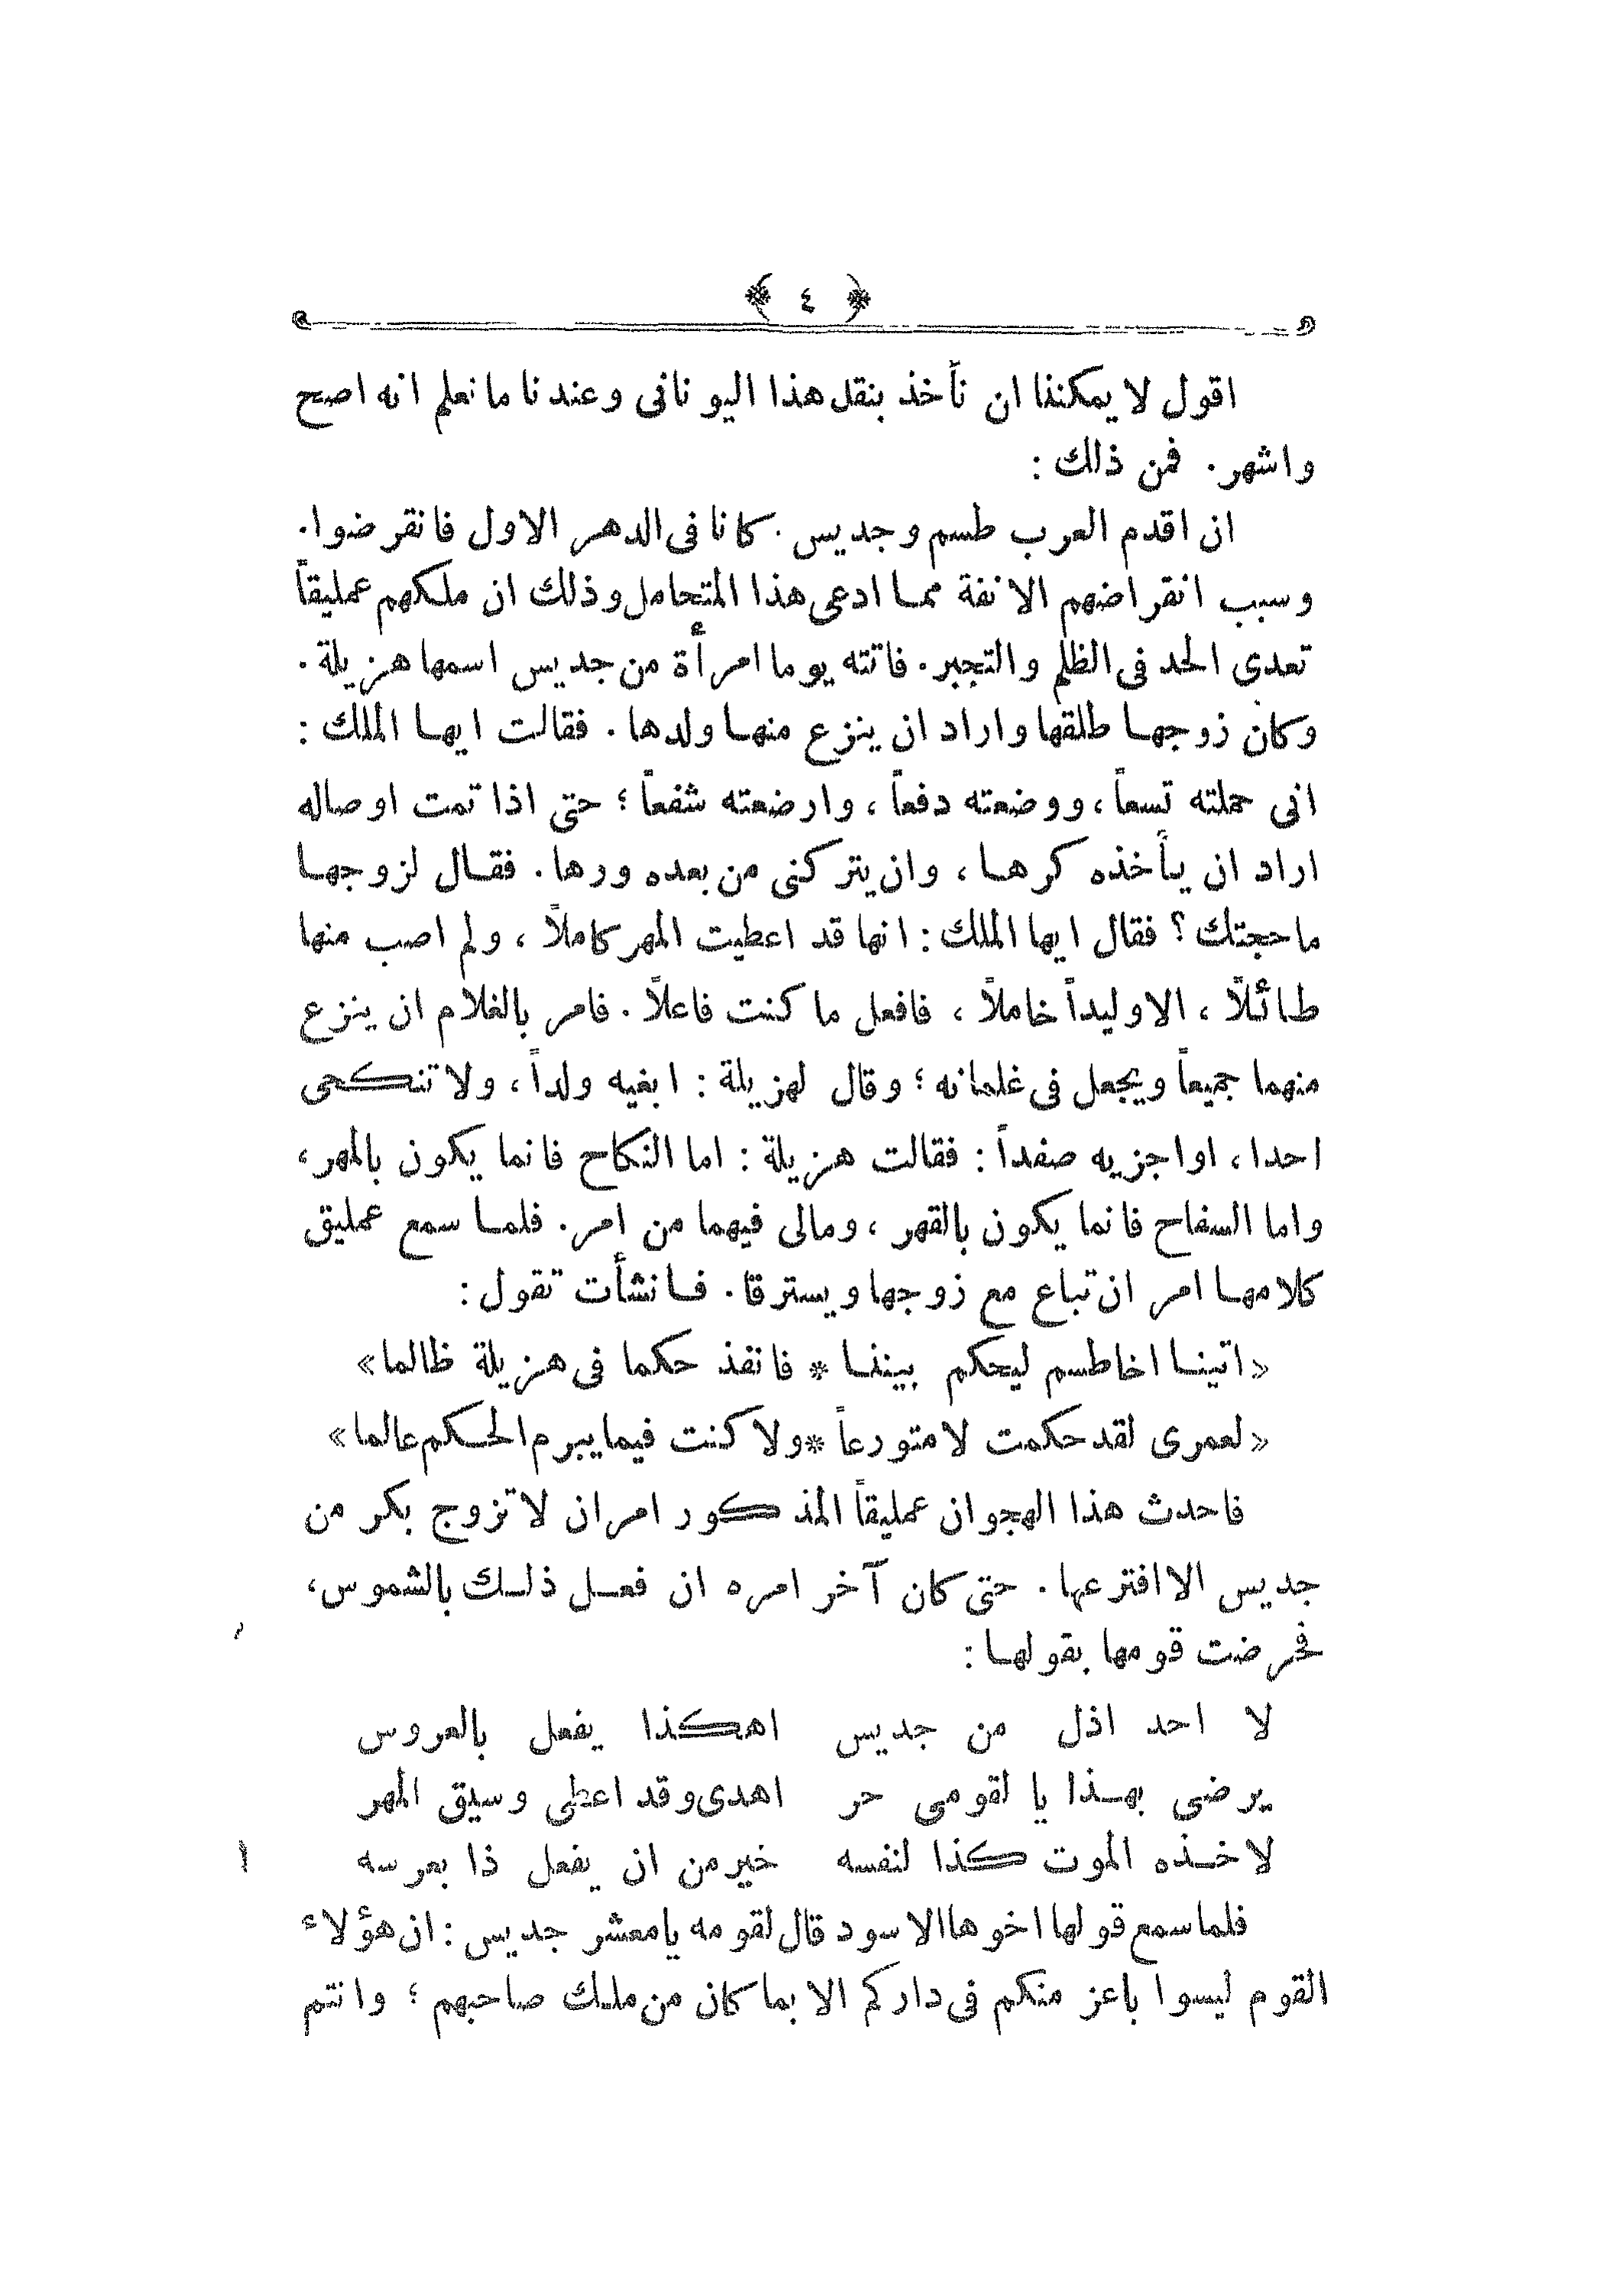 ﴿ ٤ ﴾
اقول لا يمكننا ان نأخذ بنقل هذا اليونانى وعندنا ما نعلم انه اصح
واشهر. فمن ذلك :
ان اقدم العرب طسم وجديس. كانا فى الدهر الاول فانقرضوا.
وسبب انقراضهم الانفة مما ادعى هذا المتحامل وذلك ان ملكهم عمليقاً
تعدى الحد فى الظلم والتجبر. فاتته يوما امرأة من جديس اسمها هزيلة.
وكان زوجها طلقها واراد ان ينزع منها ولدها. فقالت ايها الملك :
انى حملته تسعاً، ووضعته دفعاً، وارضعته شفعاً؛ حتى اذا تمت اوصاله
اراد ان يأخذه كرها، وان يتركنى من بعده ورها. فقال لزوجها
ما حجتك؟ فقال ايها الملك : انها قد اعطيت المهر كاملاً، ولم اصب منها
طائلاً، الا وليداً خاملاً، فافعل ما كنت فاعلاً. فامر بالغلام ان ينزع
منهما جميعاً ويجعل فى غلمانه؛ وقال لهزيلة : ابغيه ولداً، ولا تنكحى
احدا، او اجزيه صفداً : فقالت هزيلة : اما النكاح فانما يكون بالمهر،
واما السفاح فانما يكون بالقهر، ومالى فيهما من امر. فلما سمع عمليق
كلامها امر ان تباع مع زوجها ويسترقا. فانشأت تقول :
«اتينا اخا طسم ليحكم بيننا * فانفذ حكما فى هزيلة ظالما»
«لعمرى لقد حكمت لا متورعاً * ولا كنت فيما يبرم الحكم عالما»
فاحدث هذا الهجو ان عمليقاً المذكور امر ان لا تزوج بكر من
جديس الا افترعها. حتى كان آخر امره ان فعل ذلك بالشموس،
فحرضت قومها بقولها :
لا احد اذل من جديس اهكذا يفعل بالعروس
يرضى بهذا يا لقومى حر اهدى وقد اعطى وسيق المهر
لاخذه الموت كذا لنفسه خير من ان يفعل ذا بعرسه
فلما سمع قولها اخوها الاسود قال لقومه يا معشر جديس : ان هؤلاء
القوم ليسوا باعز منكم فى داركم الا بما كان من ملك صاحبهم؛ وانتم